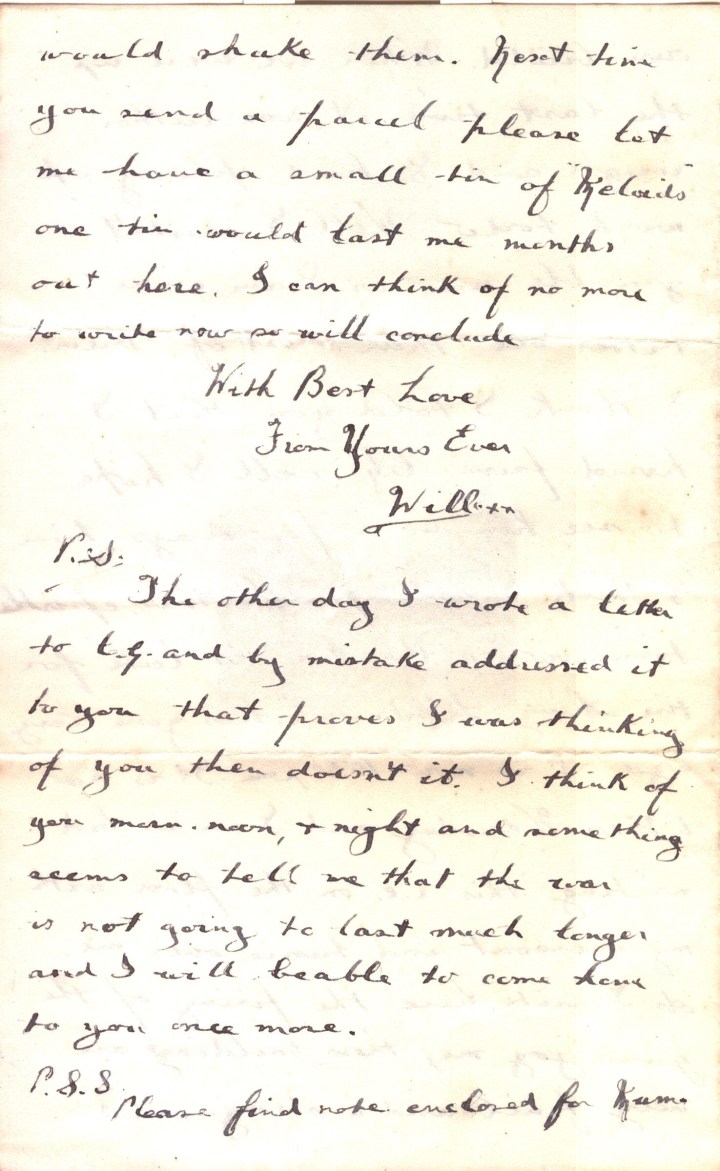 would shake them. Next time
you send a parcel please let
me have a small tin of "Keloids"
one tin would last me months
out here. I can think of no more
to write now so will conclude
With Best Love
From Yours Ever
Will xxx
P.S.
The other day I wrote a letter
to E.G. and by mistake addressed it
to you that proves I was thinking
of you then doesn't it. I think of
you morn. noon, + night and something
seems to tell me that the war
is not going to last much longer
and I will beable to come home
to you once more.
P.S.S.
Please find note enclosed for Mum.